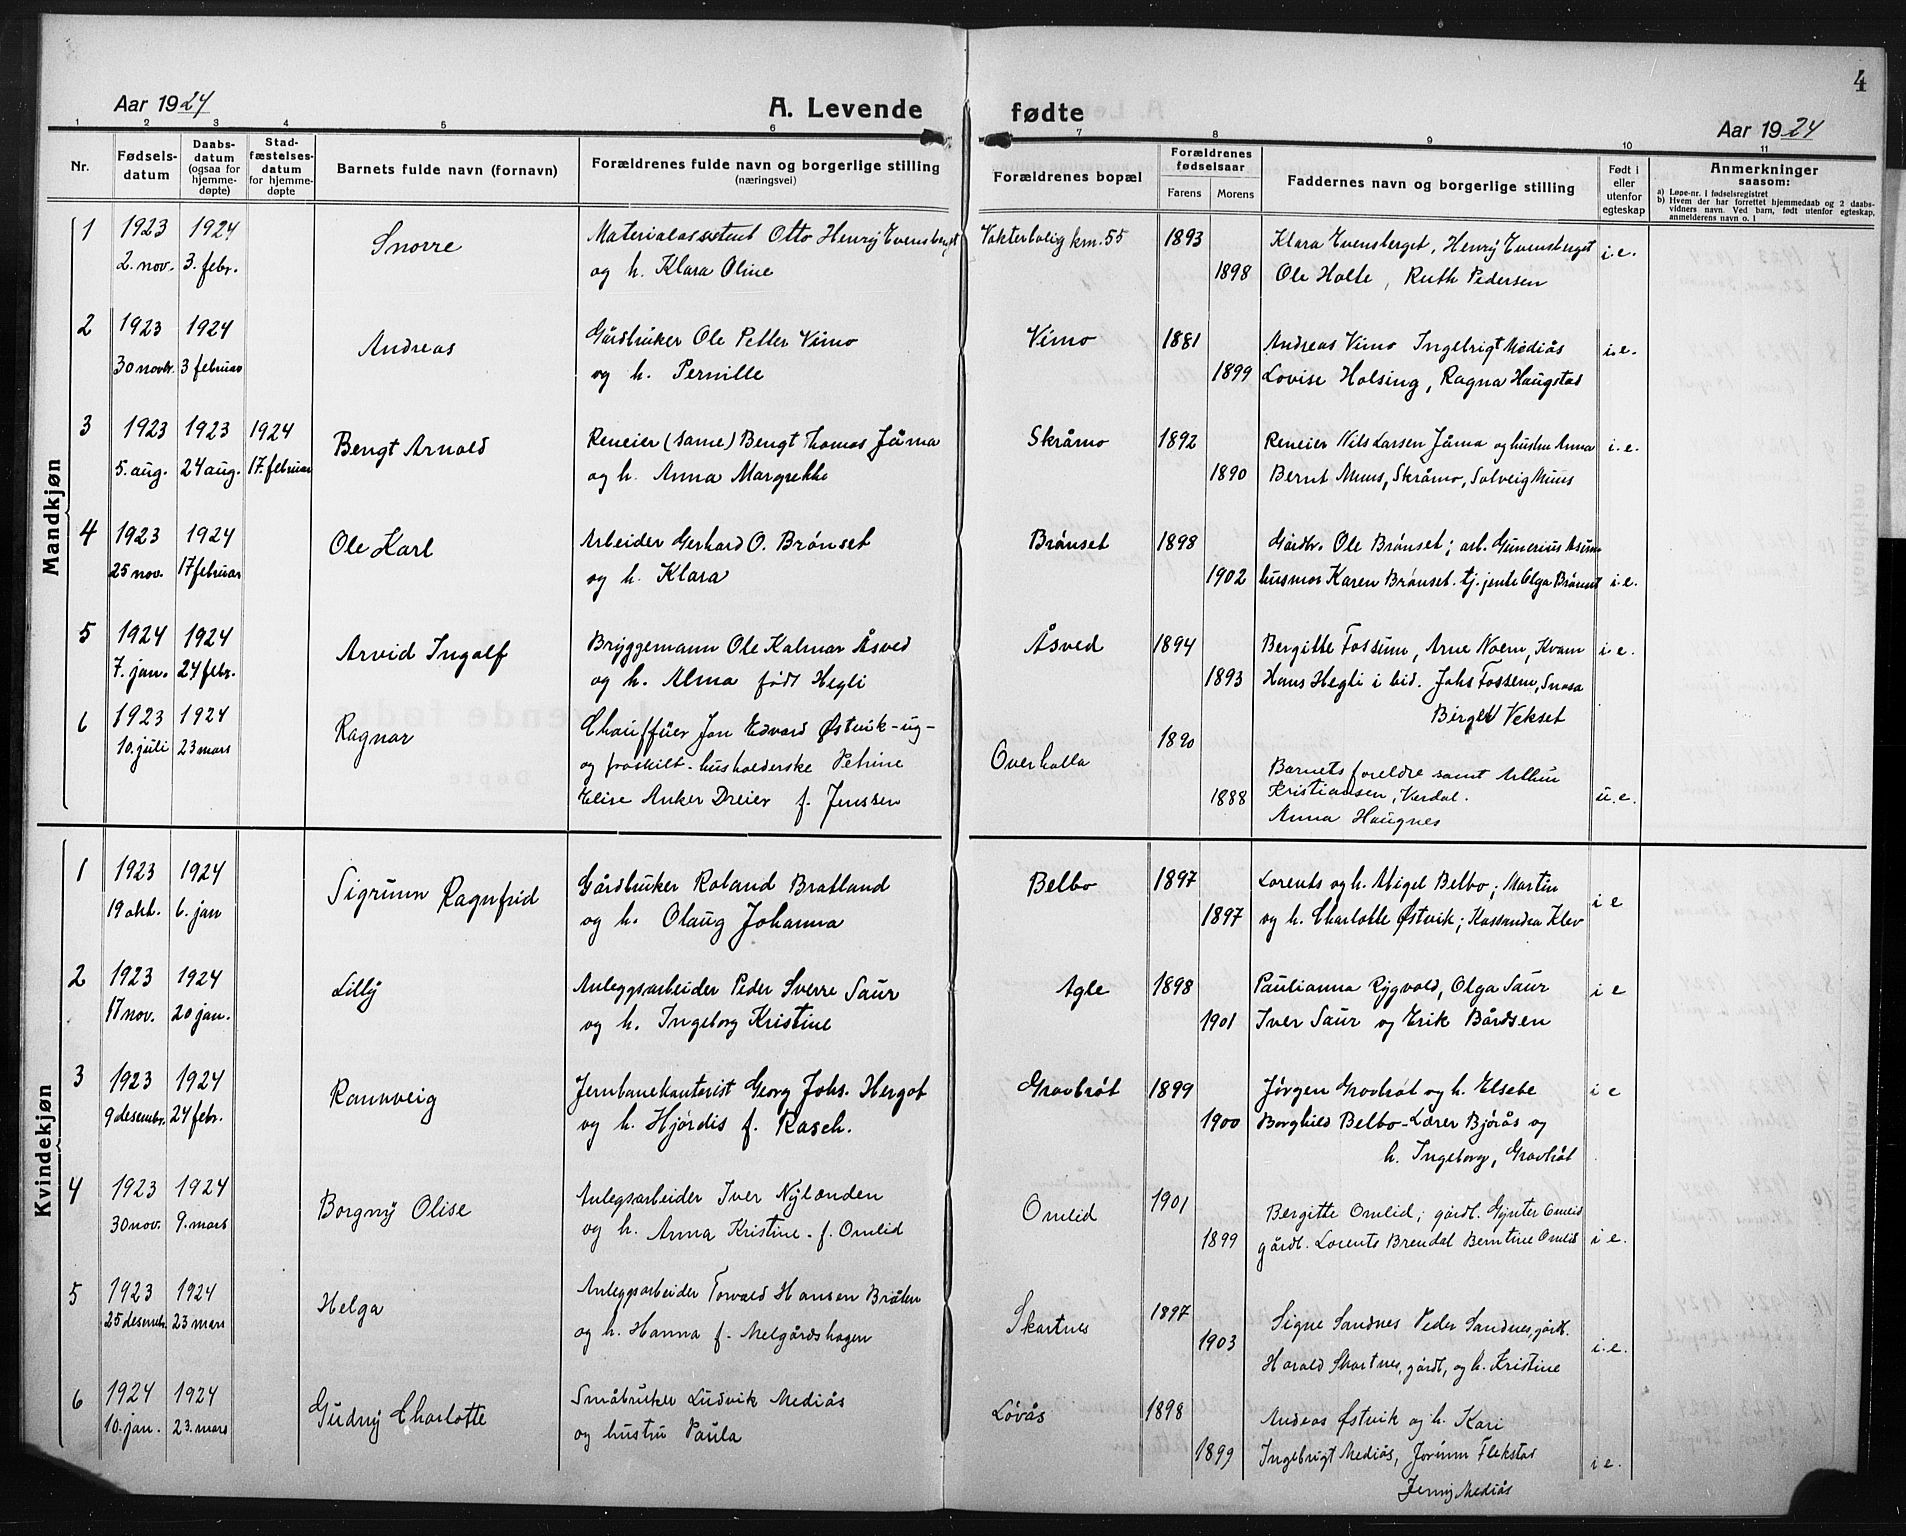 4
Aar 1924
A. Levende fødte
Aar 1924
1 2 3 4 5 6 7 8 9 10 11
Nr.
Fødselsdatum
Daabsdatum (ogsaa for hjemmedøpte)
Stadfæstelsesdatum for hjemmedøpte
Barnets fulde navn (fornavn)
Forældrenes fulde navn og borgerlige stilling (næringsvei)
Forældrenes bopæl
Forældrenes fødselsaar
Farens Morens
Faddernes navn og borgerlige stilling
Født i eller utenfor egteskap
Anmerkninger saasom:
a) Løpe-nr. i fødselsregistret
b) Hvem der har forrettet hjemmedaab og 2 daabsvidners navn. Ved barn, født utenfor egteskap, anmelderens navn o. l
Mandkjøn
1 1923 1924 Snorre Materialassistent Otto Henry Evensberget Vokterbolig km. 55 1893 Klara Evensberget, Henry Evensberget i.e.
2. nov. 3. febr. og h. Klara Oline 1898 Ole Holte, Ruth Pedersen
2 1923 1924 Andreas Gårdbruker Ole Petter Vimo Vimo 1881 Andreas Vimo Ingebrigt Mediås i.e.
30 novbr. 3 februar og h. Pernille 1899 Lovise Holsing, Ragna Haugstad
3 1923 1923 1924 Bengt Arnold Reneier (same) Bengt Thomas Jåma Skråmo 1892 Reneier Nils Larsen Jåma og hustru Anna i.e.
5. aug. 24 aug. 17. februar og h. Anna Margrethe 1890 Bernt Muus, Skråmo, Solveig Muus
4 1923 1924 Ole Karl Arbeider Gerhard O. Brønset Brønset 1898 Gårdbr. Ole Brønset; arb. Gunerius
25 nov. 17 februar og h. Klara 1902 husmor Karen Brønset. tj. jente Olga Brønset i.e.
5 1924 1924 Arvid Ingolf Bryggemann Ole Kalmar Åsved Åsved 1894 Bergitte Fossum, Arne Noem, Kvam i.e.
7. jan. 24 febr. og h. Alma født Hegli 1893 Hans Hegli i bid. Johs Fossem, Snåsa
Birget Vekset
6 1923 1924 Ragnar Chauffüer Jon Edvard Østvik - ug - Overhalla 1890
10. juli 23 mars og fraskilt husholderske Petrine Barnets foreldre samt Arthur
Elise Anker Dreier f. Jenssen 1888 Kristiansen, Verdal. u.e.
Anna Haugnes
Kvindekjøn
1 1923 1924 Sigrunn Ragnfrid Gårdbruker Roland Bratland Belbo 1897 Lorents og h. Abigel Belbo; Martin i e
19 okt. 6. jan og h. Olaug Johanna 1897 og h. Charlotte Østvik; Kassandra Klev
2 1923 1924 Lilly Anleggsarbeider Peder Sverre Saur Agle 1898 Paulianna Rygvold, Olga Saur i e
17 nov. 20 jan. og h. Ingeborg Kristine 1901 Iver Saur og Erik Bårdsen
3 1923 1924 Rannveig Jernbanekontorist Georg Johs. Hergot Gravbrøt 1899 Jørgen Gravbrøt og h. Elsebe i e
9 desembr. 24 febr. og h. Hjørdis f. Rasch. 1900 Borghild Belbo - Lærer Bjørås og
h. Ingeborg, Gravbrøt
4 1923 1924 Borgny Olise Anlegsarbeider Iver Nylanden Omlid 1901 Bergitte Omlid; gårdb. Gynter Omlid
30 nov. 9. mars og h. Anna Kristine f. Omlid 1899 gårdb. Lorents Brendal Berntine Omlid i e.
5 1923 1924 Helga Anleggsarbeider Torvald Hansen Bråten Skartnes 1897 Signe Sandnes Peder Sandnes, gårdb.
25 desembr. 23 mars og h. Hanna f. Melgårdshagen 1903 Harald Skartnes, gårdb, og h. Kristine i.e.
6 1924 1924 Gudny Charlotte Småbruker Ludvik Mediås Løvås 1898 Andreas Østvik og h. Kari
10. jan. 23. mars og hustru Paula 1899 Ingebrigt Mediås, Jorunn Flekstad i e.
Jenny Mediås